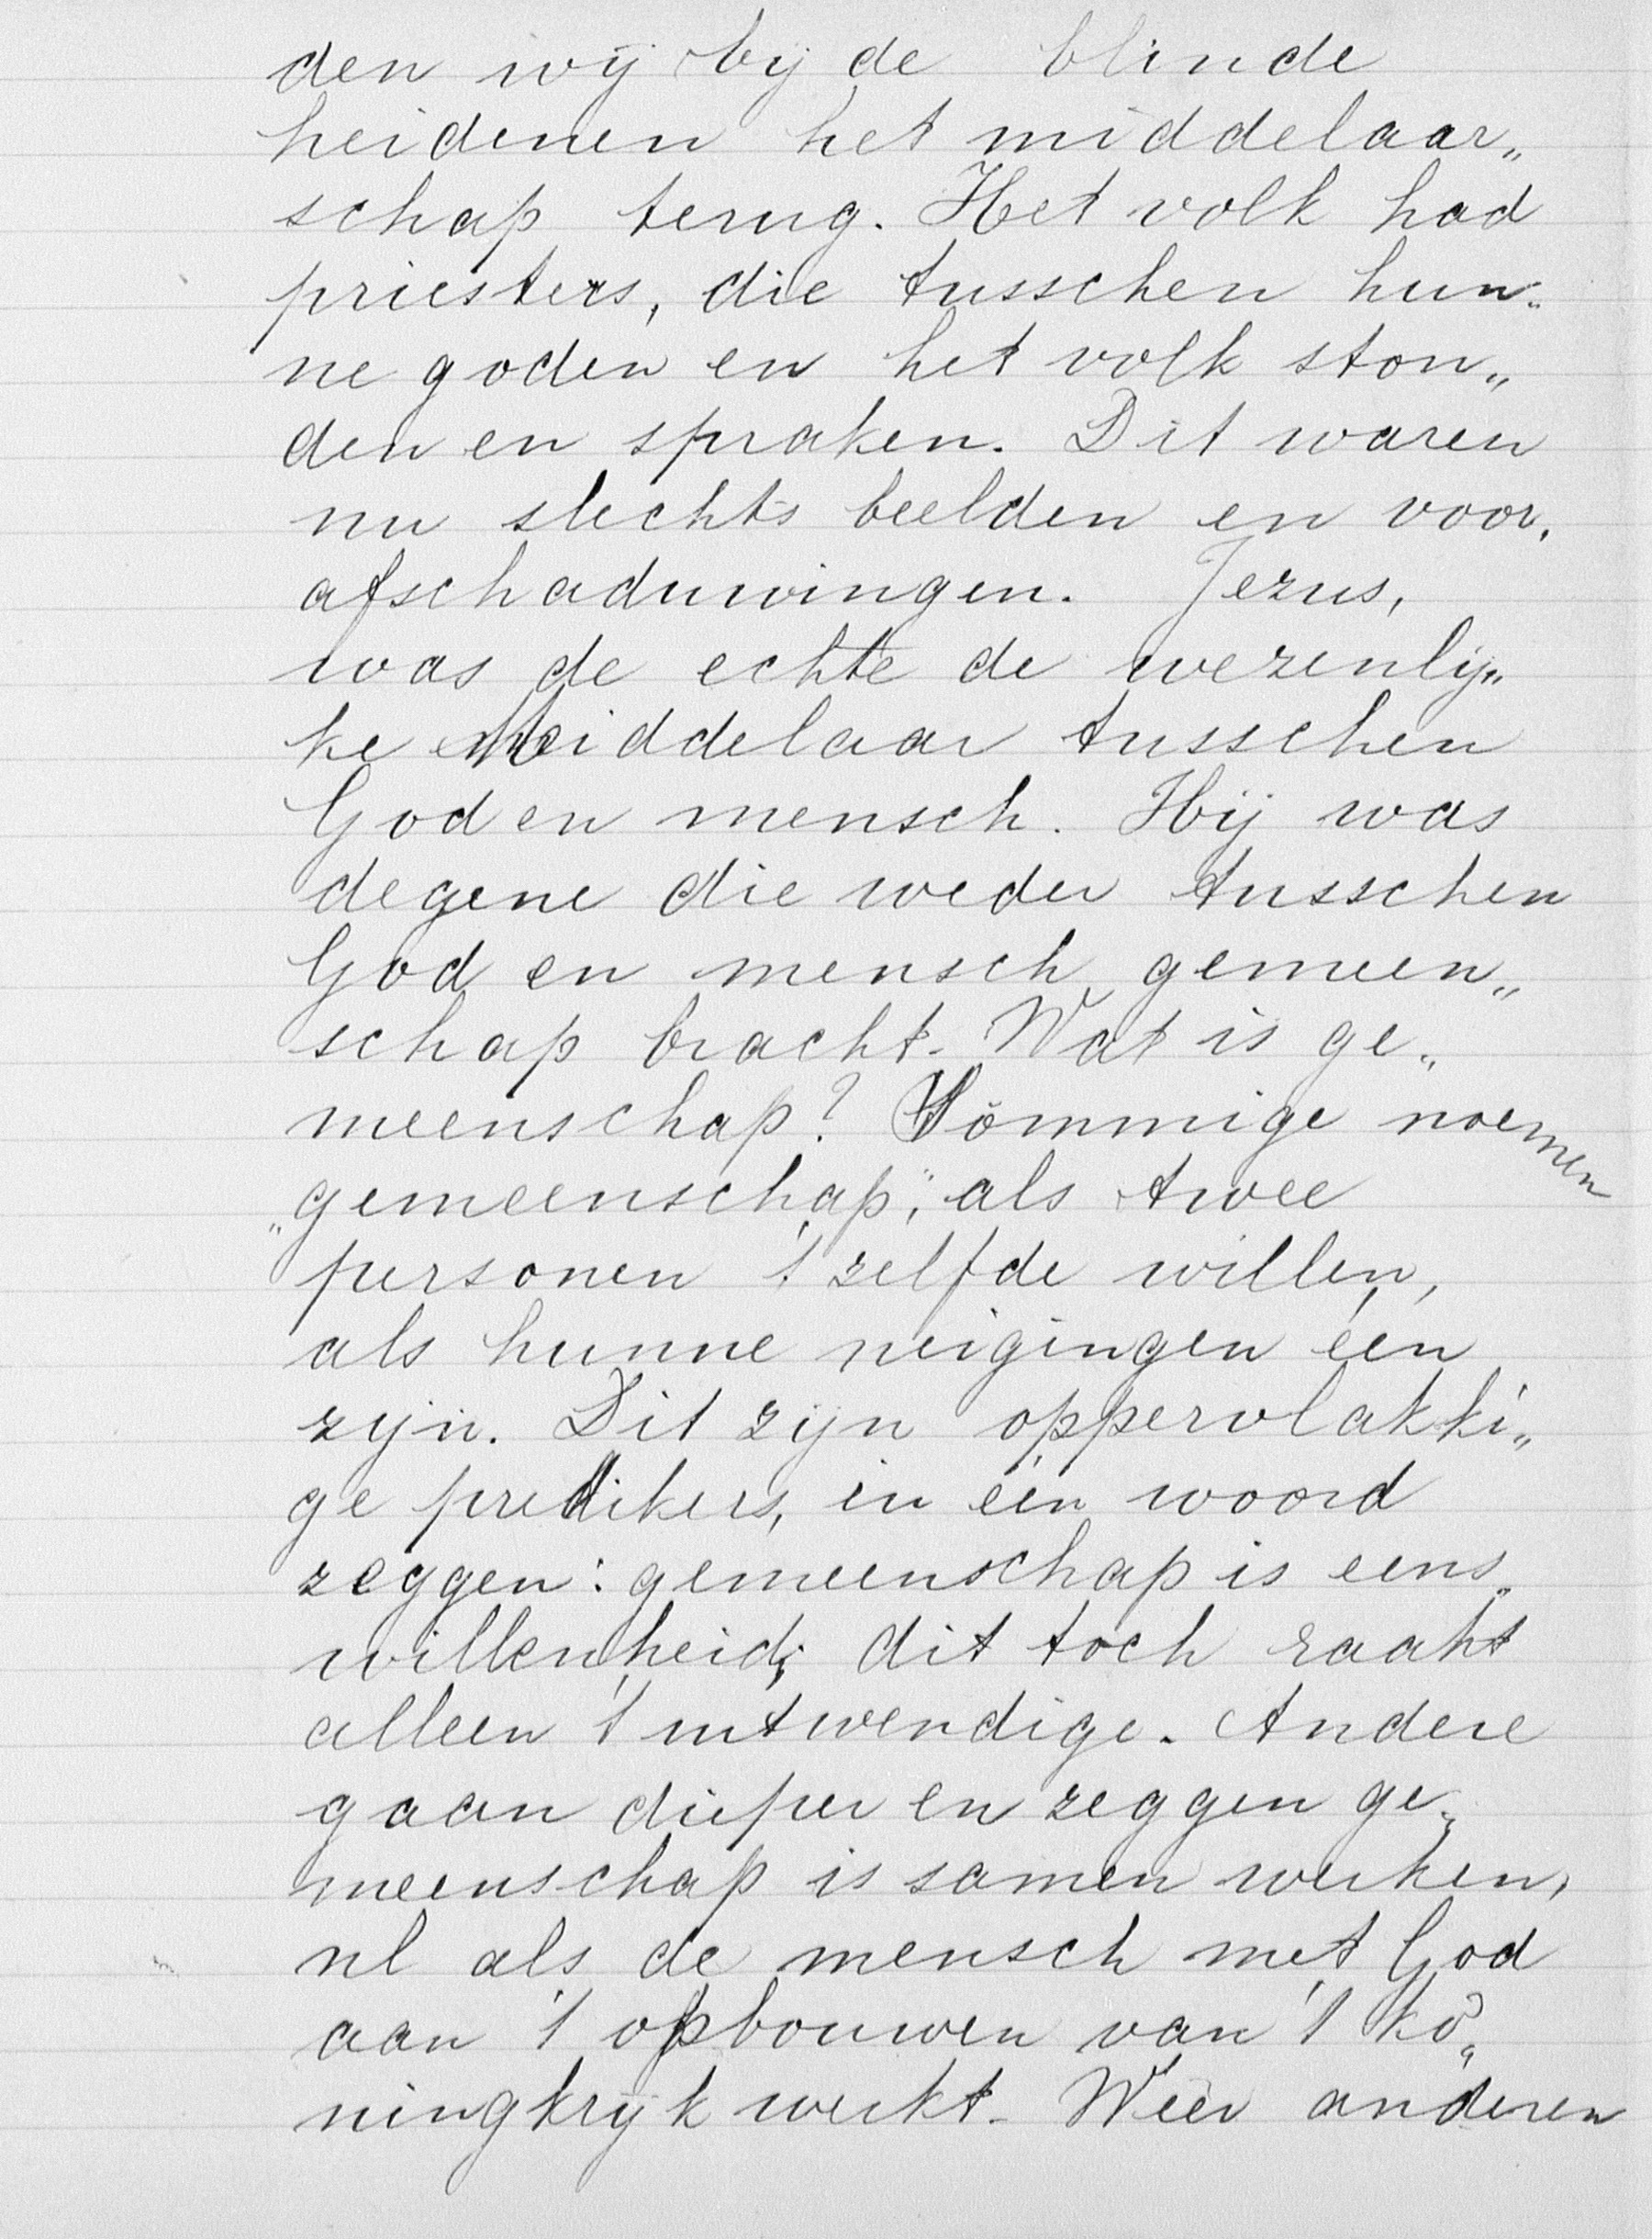 den wij bij de blinde
heidenen het middelaar„
schap terug. Het volk had
priesters, die tusschen hun„
ne goden en het volk ston„
den en spraken. Dit waren
nu slechts beelden en voor„
afschaduwingen. Jezus,
was de echte de wezenlij„
ke Middelaar tusschen
God en mensch. Hij was
degene die weder tusschen
God en mensch gemeen„
schap bracht. Wat is ge„
meenschap? Sommige noemen
„gemeenschap", als twee
personen 't zelfde willen,
als hunne neigingen één
zijn. Dit zijn oppervlakki„
ge predikers, in één woord
zeggen: gemeenschap is eens„
willenheid; dit toch raakt
alleen 't uitwendige. Andere
gaan dieper en zeggen ge„
meenschap is samen werken,
nl als de mensch met God
aan 't opbouwen van 't ko„
ningkrijk werkt. Weer anderen